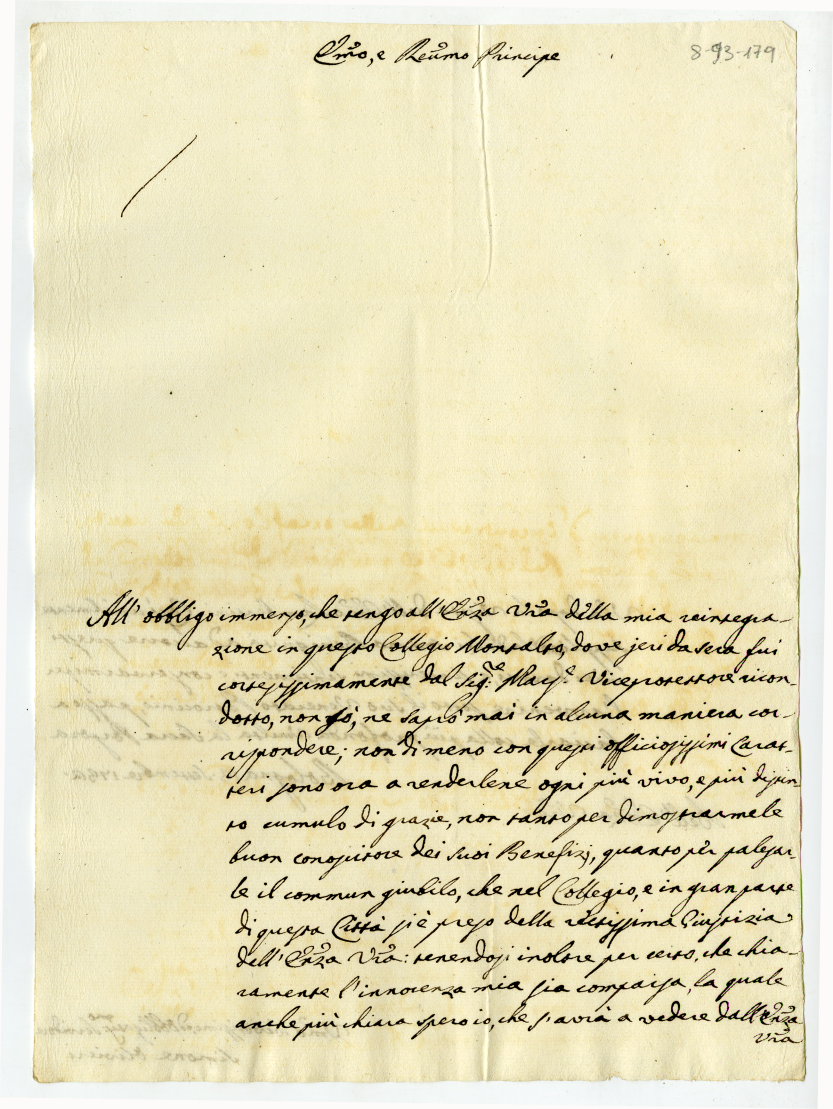 Emo, e Reumo Principe
8-93-179
All' obbligo immenso, che tengo all' Emza Vra della mia reintegra-
zione in questo Collegio Montalto, dove jeri da sera fui
cortesissimamente dal Sigr. March.e Viceprotettore ricon-
dotto, non só, ne sapró mai in alcuna maniera cor-
rispondere; non di meno con questi officiosissimi Carat-
teri sono ora a renderlene ogni più vivo, e più distin-
to cumulo di grazie, non tanto per dimostrarmele
buon conoscitore dei suoi Benefizj, quanto per palesar-
le il commun giubilo, che nel Collegio, e in gran parte
di questa Città si è preso della rettissima Giustizia
dell' Emza Vra: tenendosi inoltre per certo, che chia-
ramente l'innocenza mia sia comparsa, la quale
anche più chiara spero io, che s'avrà a vedere dall' Emza
Vra